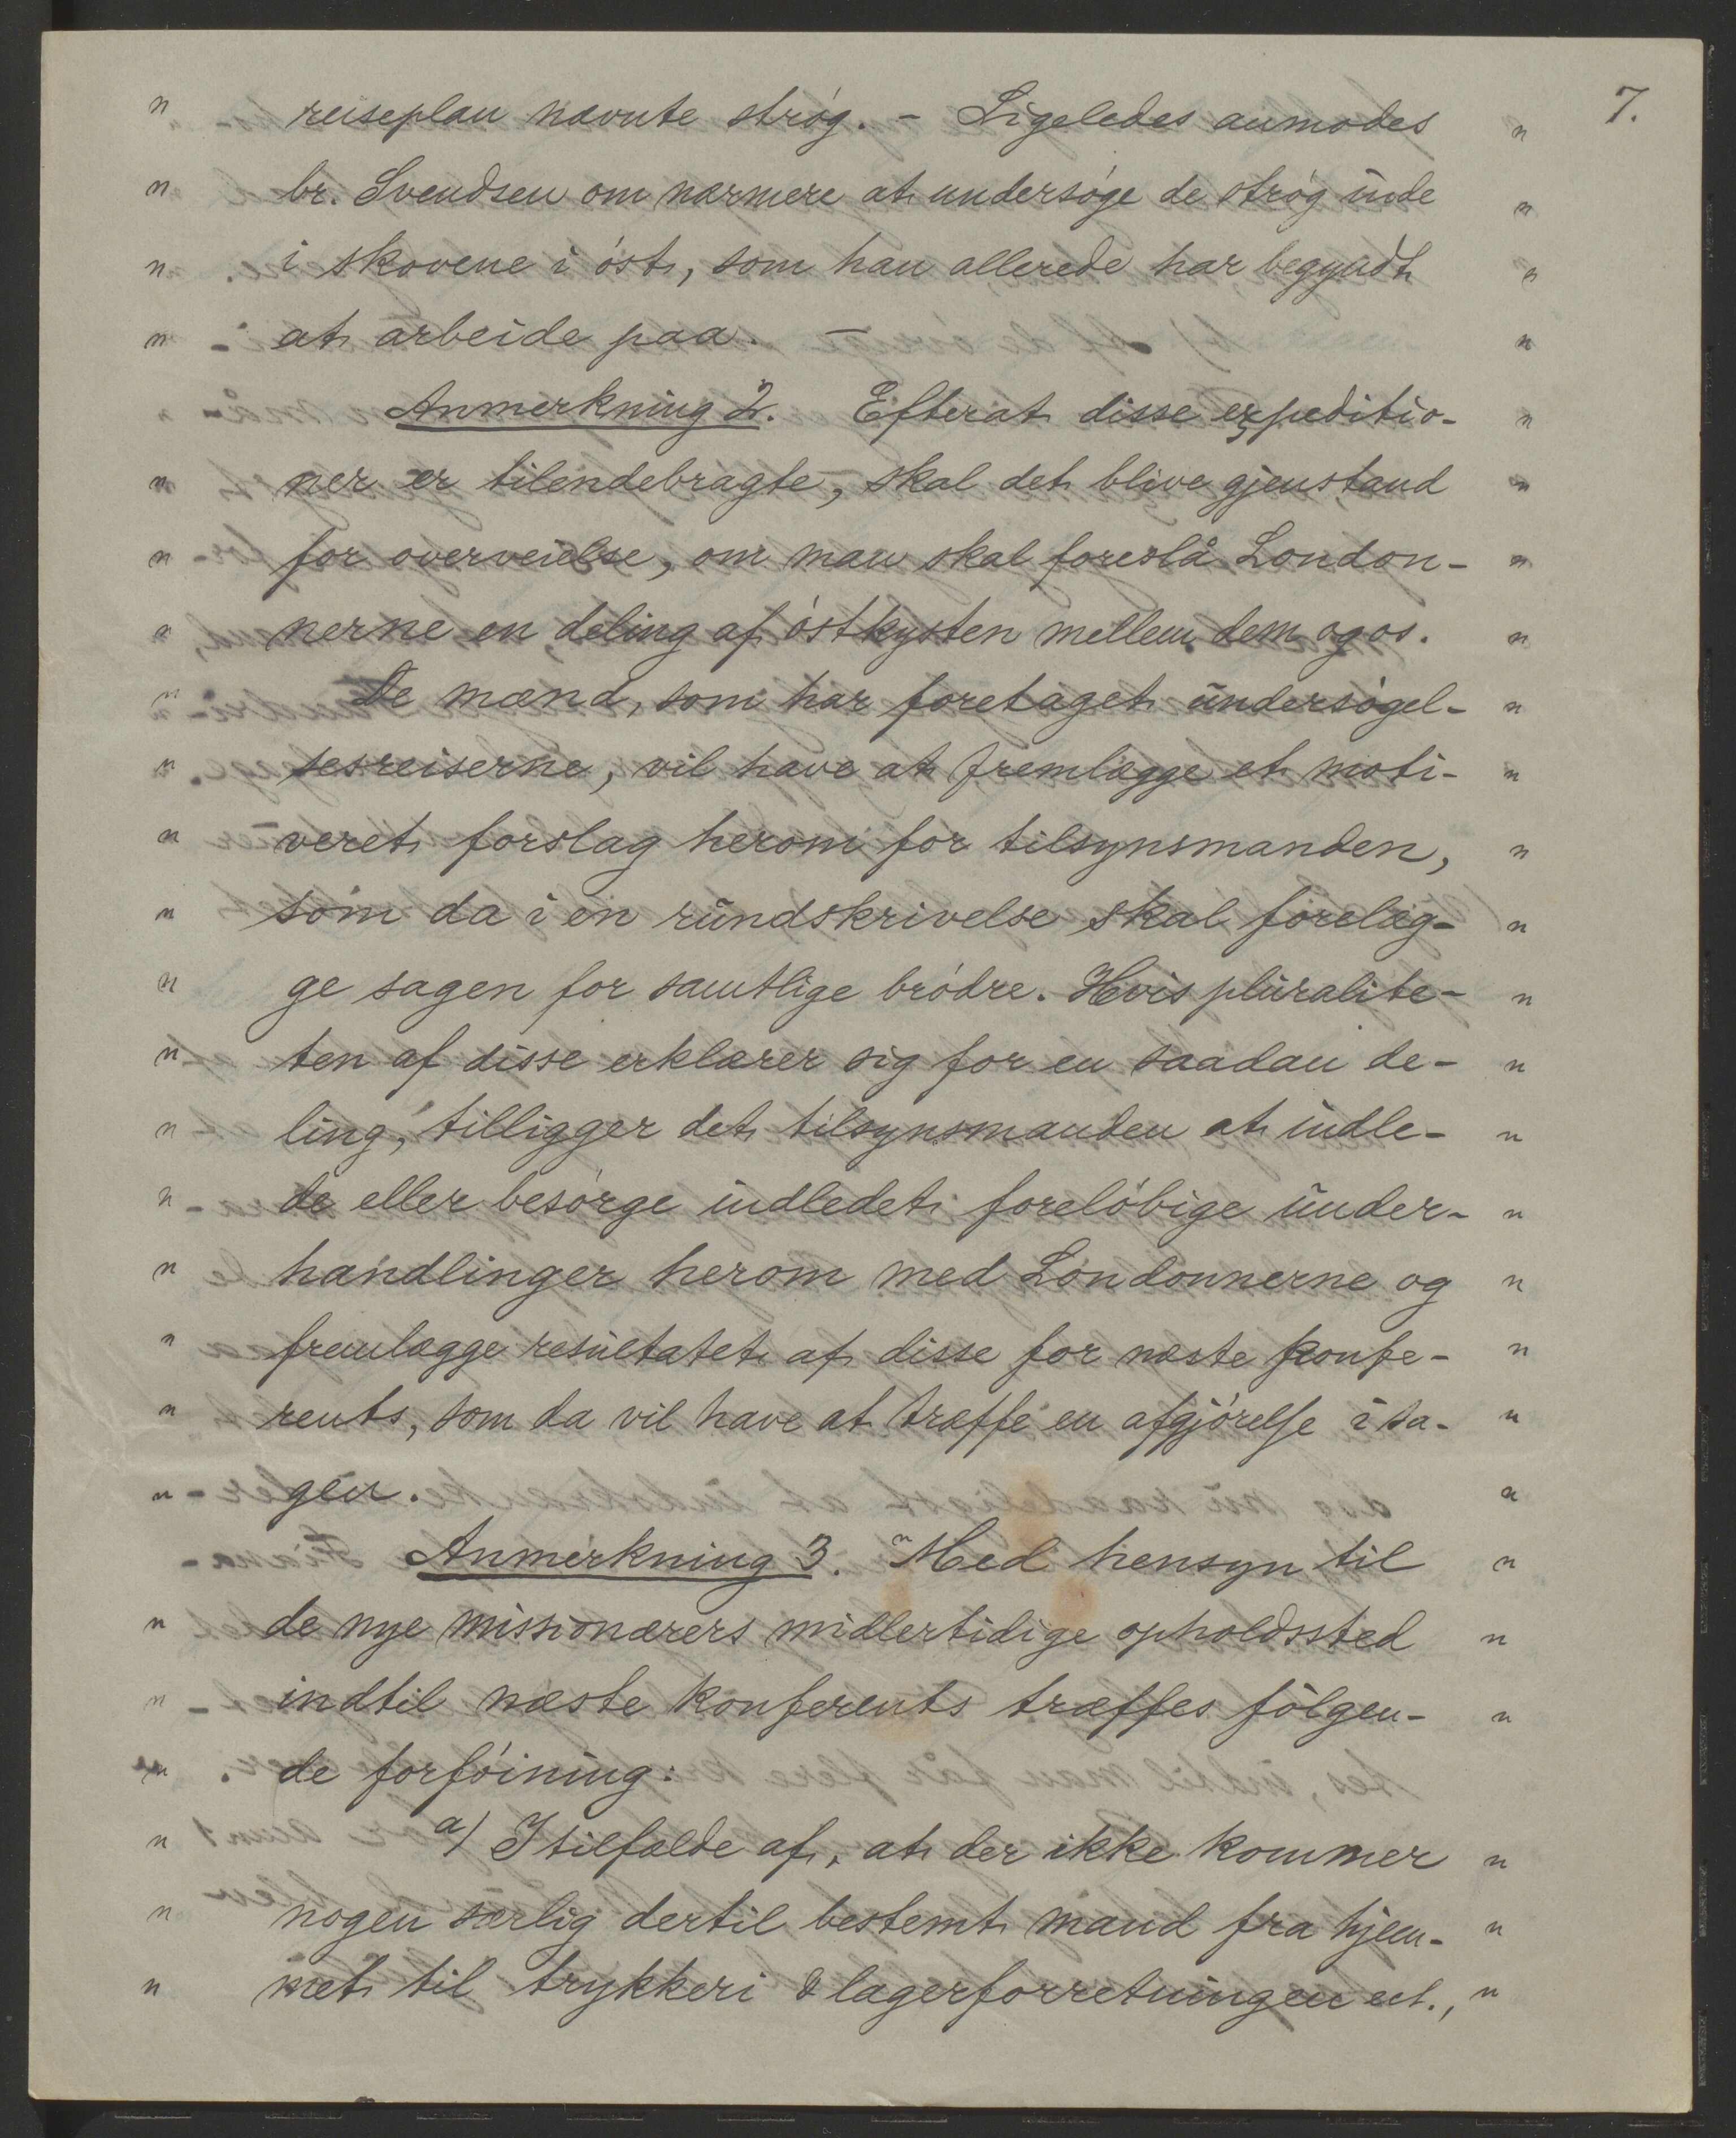 7.
" reiseplan nævnte strøg. – Ligeledes anmodes "
" br. Svendsen om nærmere at undersøge de strøg inde "
" i skovene i øst, som han allerede har begyndt "
" at arbeide paa. – "
Anmerkning 2. Efterat disse expeditio- "
" ner er tilendebragte, skal det blive gjenstand "
" for overveielse, om man skal foreslå London- "
" nerne en deling af østkysten mellem dem og os. "
" De mænd, som har foretaget undersøgel- "
" sesreiserne, vil have at fremlægge et moti- "
" veret forslag herom for tilsynsmanden, "
" som da i en rundskrivelse skal forelæg- "
" ge sagen for samtlige brødre. Hvis pluralite- "
" ten af disse erklærer sig for en saadan de- "
" ling, tilligger det tilsynsmanden at indle- "
" de eller besørge indledet foreløbige under- "
" handlinger herom med Londonnerne og "
" fremlægge resultatet af disse for næste konfe- "
" rents, som da vil have at træffe en afgjørelse i sa- "
" gen. "
Anmerkning 3. "Med hensyn til "
" de nye missionærers midlertidige opholdssted "
" indtil næste konferents træffes følgen- "
" de forføining:
" a) I tilfælde af, at der ikke kommer "
" nogen særlig dertil bestemt mand fra hjem- "
" met til trykkeri & lagerforretningen ect., "